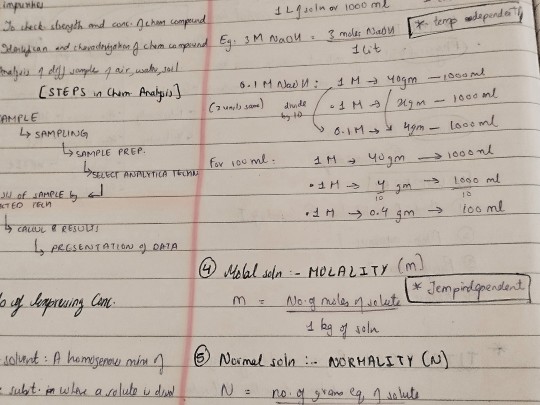 impurities
To check strength and conc. of chem compound
Identifican and characterization of chem compound
Analysis of diff samples of air, water, soil
[STEPS in Chem Analysis]
SAMPLE
↳ SAMPLING
↳ SAMPLE PREP.
↳ SELECT ANALYTICA TECHN
of SAMPLE by
TECH
↳ CALCUL & RESULTS
↳ PRESENTATION of DATA
of Expressing Conc.
solvent : A homogenous mix of
subst. in where a solute is
1 L of soln or 1000 ml
* temp dependently
Eg: 3 M NaOH = 3 moles NaOH
1 Lit
0.1 M NaOH : 1 M → 40gm — 1000 ml
divide by 10
.1 M → gm — 1000 ml
0.1 M → 4gm — 1000 ml
For 100 ml : 1 M → 40 gm → 1000 ml
.1 M → 4/10 gm → 1000/10 ml
.1 M → 0.4 gm → 100 ml
④ Molal soln :- MOLALITY (m)
* Tempindependent
m = No. of moles of solute
1 kg of soln
⑤ Normal soln :- NORMALITY (N)
N = no. of gram eq. of solute